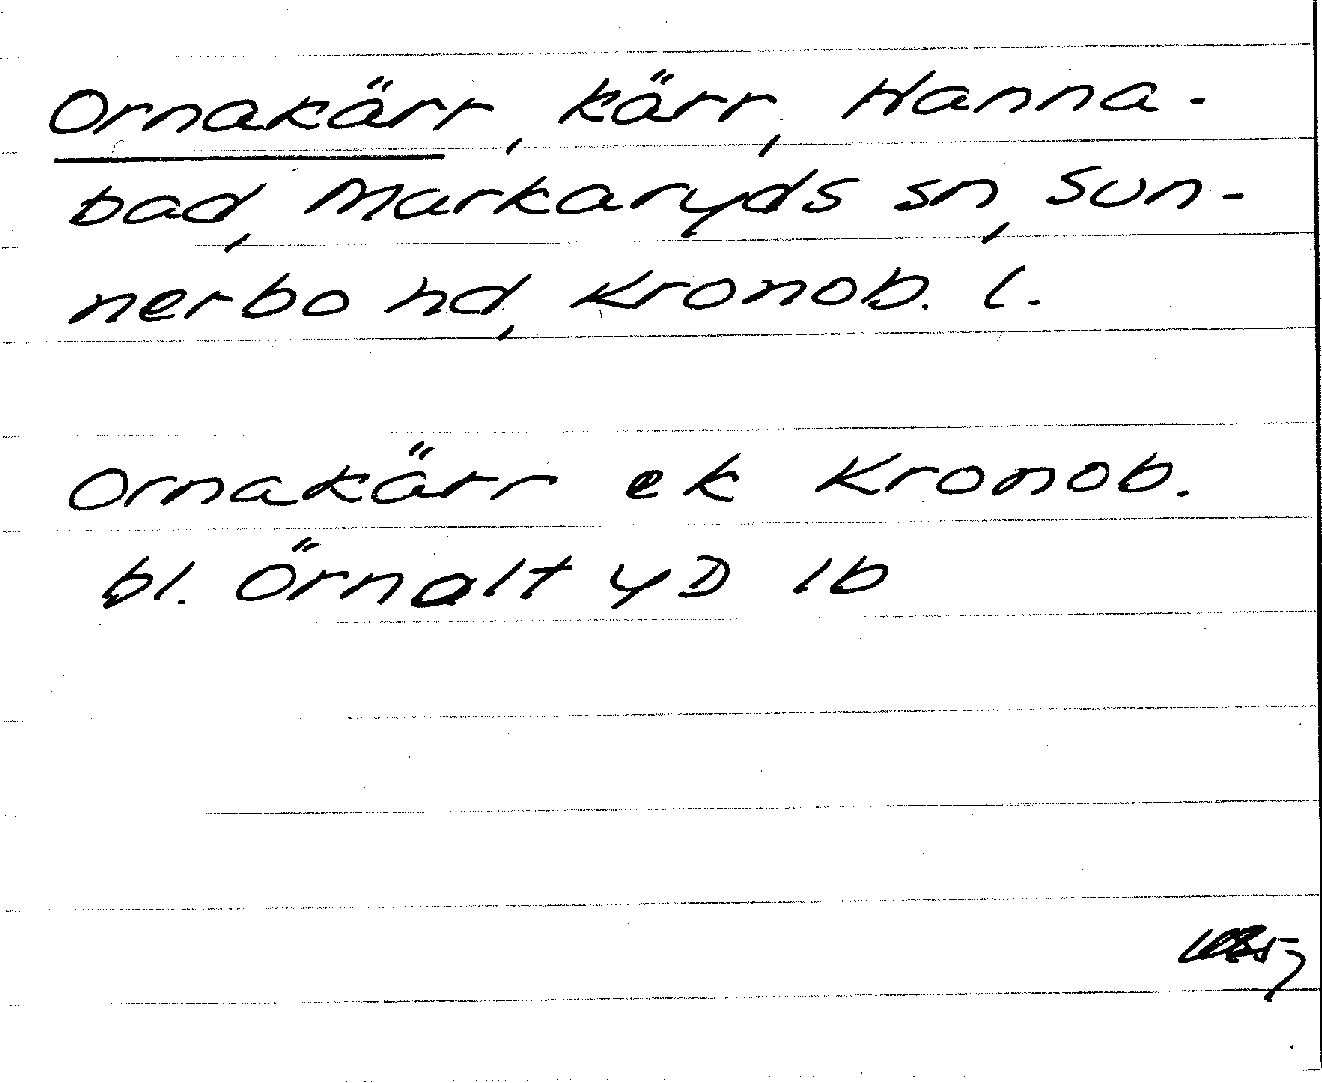 Ornakärr, kärr, Hanna-
bad, Markaryds sn, Sun-
nerbo hd, Kronob. l.
Ornakärr ek Kronob.
bl. Örnalt 4D 1b